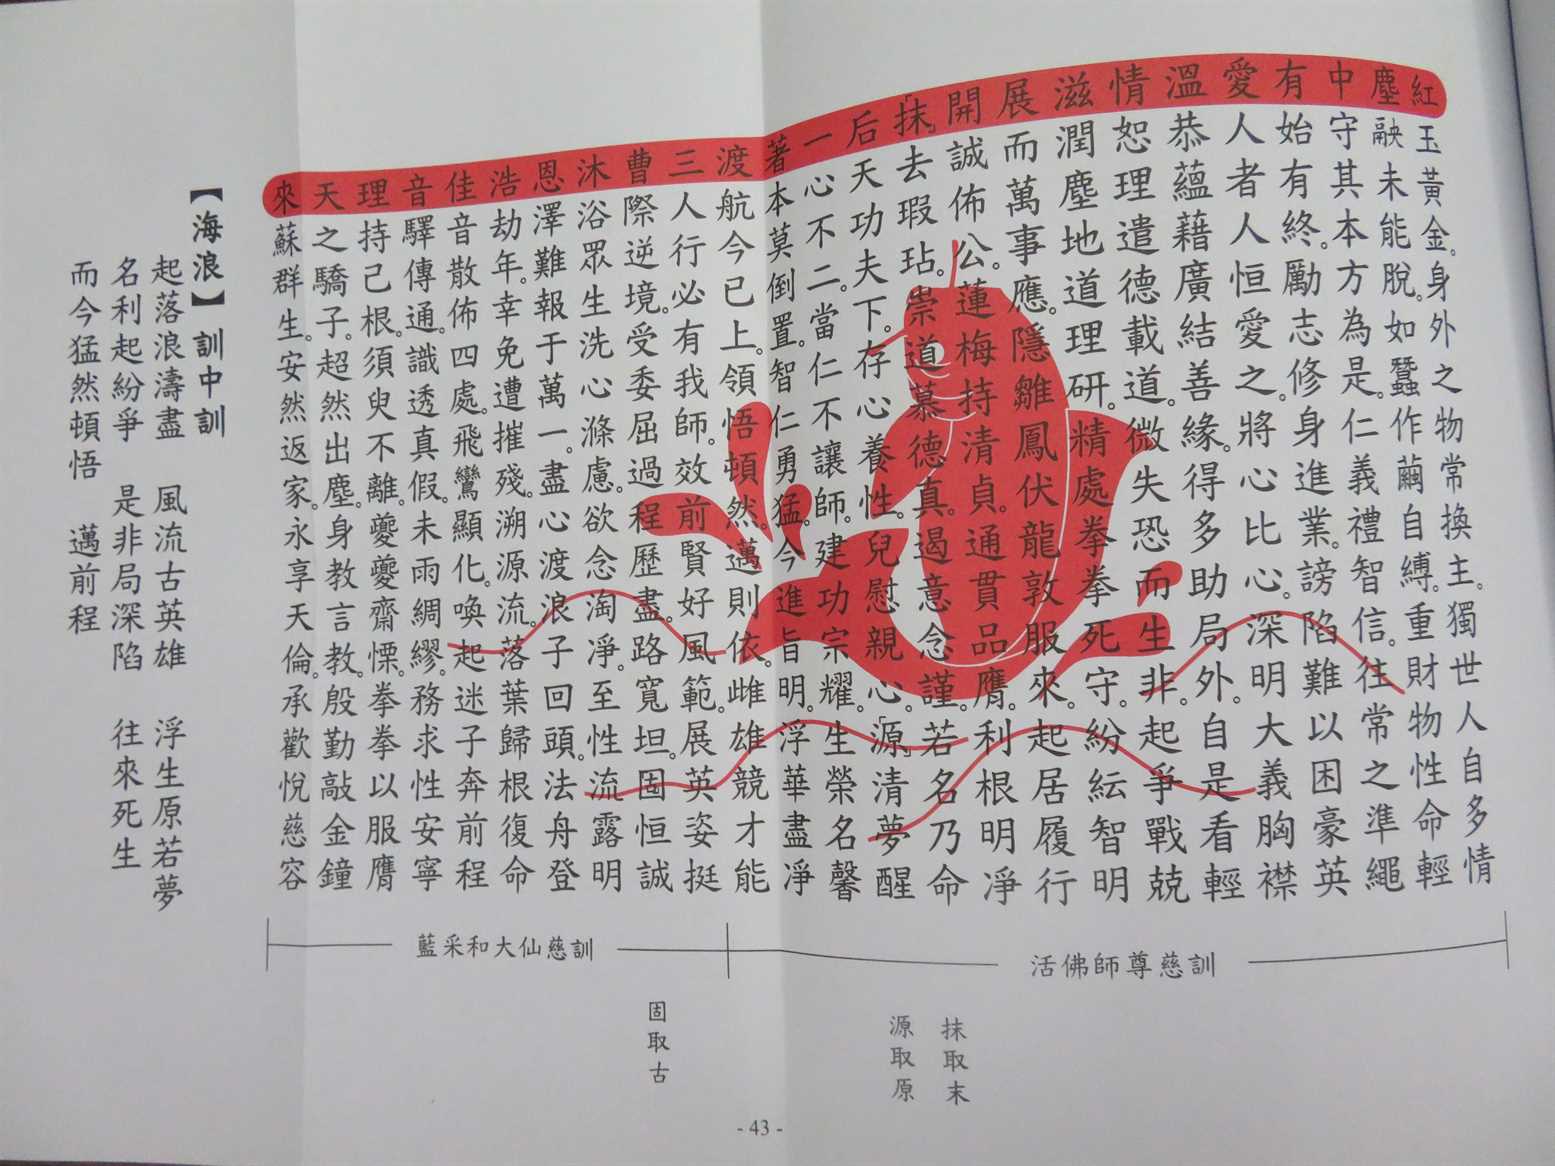 紅玉黃金。身外之物常換主。獨世人自多情
塵融未能脫。如蠶作繭自縛。重財物性命輕
中守其本方為是。仁義禮智信。往常之準繩
有始有終。勵志修身進業。謗陷難以困豪英
愛人者人恒愛之。將心比心。深明大義胸襟
溫恭蘊藉廣結善緣。得多助局外。自是看輕
情恕理遣德載道。微失恐而生非。起爭戰兢
滋潤塵地道理研。精處拳拳死守。紛紜智明
展而萬事應。隱雛鳳伏龍敦服來。起居履行
開誠佈公。蓮梅持清貞通貫品膺。利根明淨
抹。去瑕玷。崇道慕德真。遏意念謹。若名乃命
后天功夫下。存心養性。兒慰親心。源。清夢醒
一心不二。當仁不讓師。建功宗耀。生榮名馨
著本莫倒置。智仁勇猛。今進旨明。浮華盡淨
渡航今已上。領悟頓然。邁則依。雌雄競才能
三人行必有我師。效前賢好風範。展英姿挺
曹際逆境。受委屈過程歷盡。路寬坦。固恒誠
沐浴眾生洗心滌慮。欲念淘淨。至性流露明
恩澤難報于萬一。盡心渡浪子回頭。法舟登
浩劫年。幸免遭摧殘。溯源流。落葉歸根復命
佳音散佈四處。飛鸞顯化。喚起迷子奔前程
音驛傳通。識透真假。未雨綢繆。務求性安寧
理持己根。須臾不離。夔夔齋慄。拳拳以服膺
天之驕子。超然出塵。身教言教。殷勤敲金鐘
來蘇群生。安然返家。永享天倫。承歡悅慈容
【海浪】訓中訓
起落浪濤盡 風流古英雄 浮生原若夢
名利起紛爭 是非局深陷 往來死生
而今猛然頓悟 邁前程
活佛師尊慈訓
藍采和大仙慈訓
抹取末
源取原
固取古
- 43 -